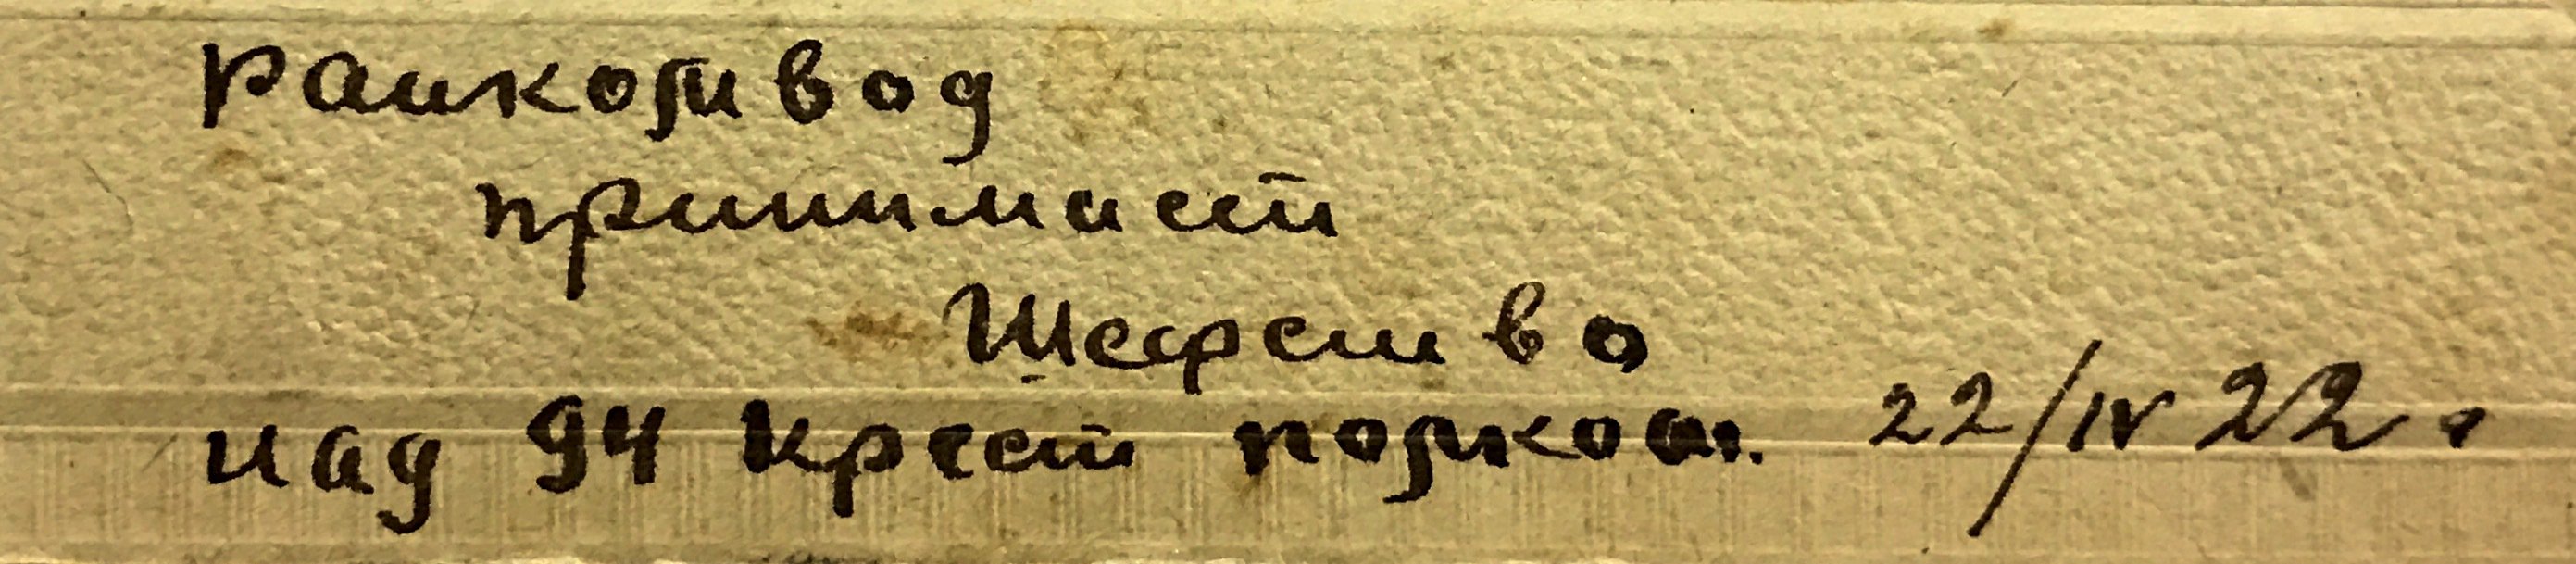 Райкомвод
принимает
Шефство
над 94 Крест полком. 22/IV 22 г